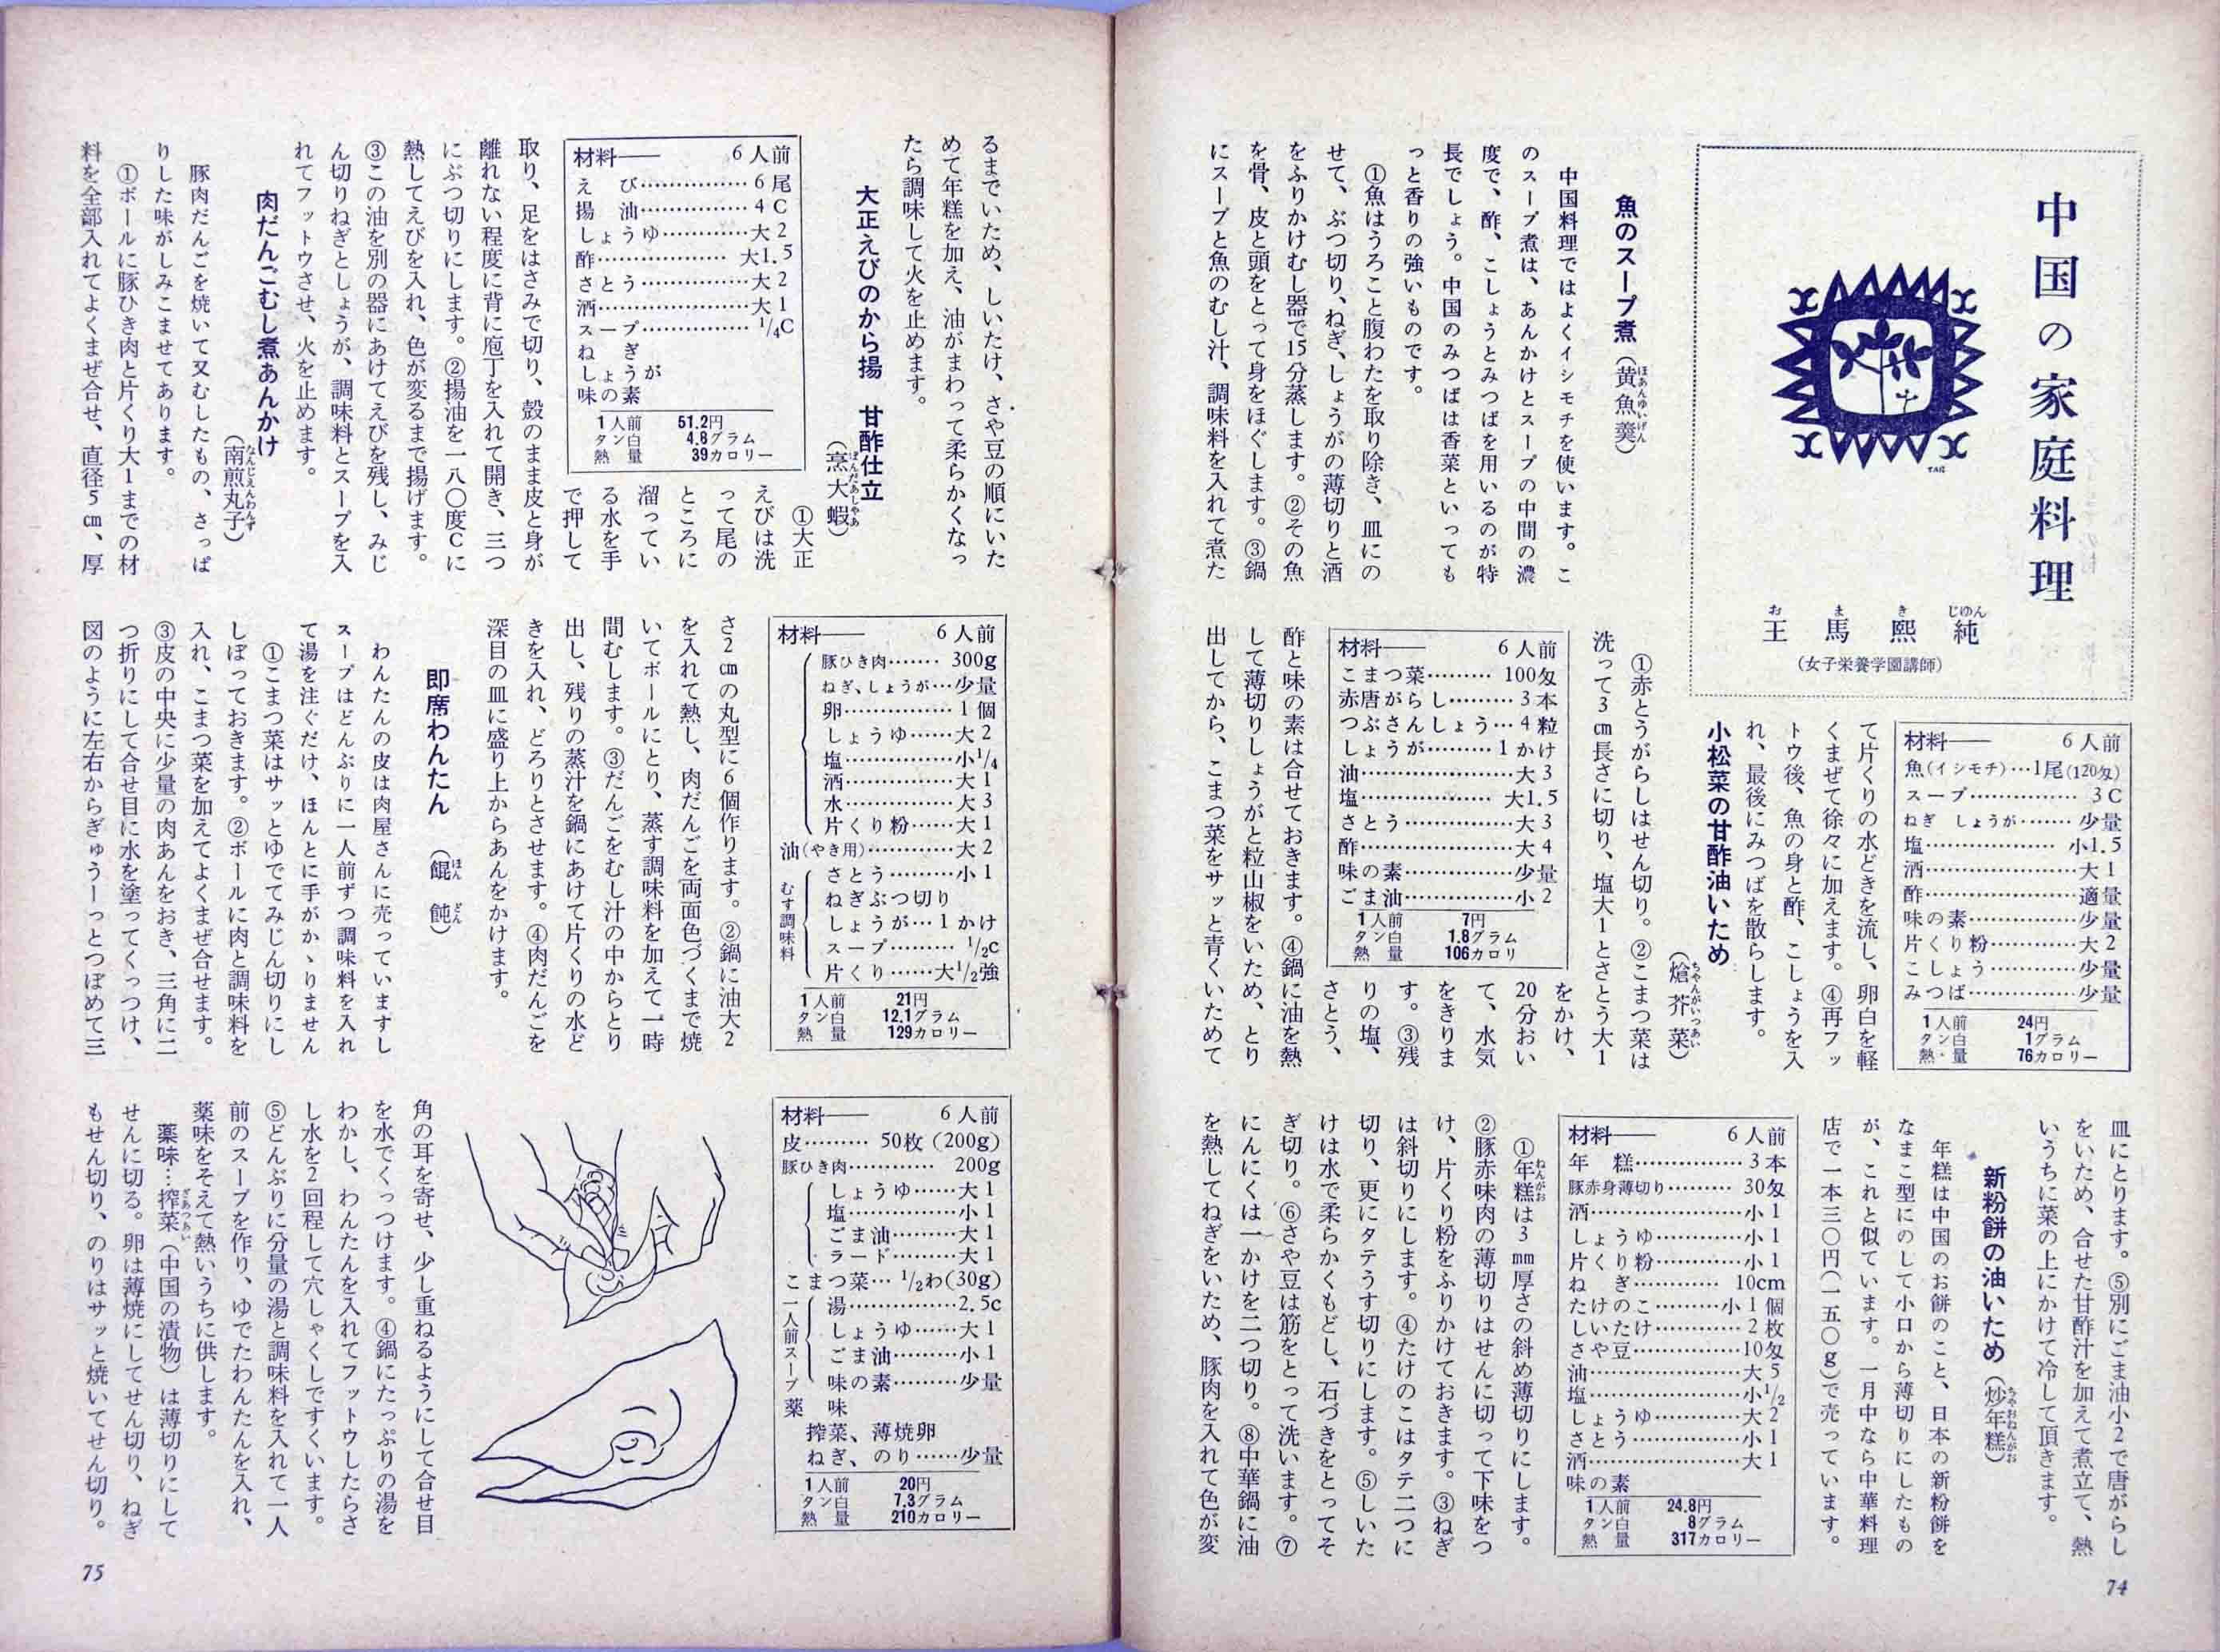 中国の家庭料理
王馬熙純
おまきじゆん
(女子栄養学園講師)
魚のスープ煮(黄魚羹)
ほあんゆいげん
中国料理ではよくイシモチを使います。こ
のスープ煮は、あんかけとスープの中間の濃
度で、酢、こしょうとみつばを用いるのが特
長でしょう。中国のみつばは香菜といっても
っと香りの強いものです。
①魚はうろこと腹わたを取り除き、皿にの
せて、ぶつ切り、ねぎ、しょうがの薄切りと酒
をふりかけむし器で15分蒸します。②その魚
を骨、皮と頭をとって身をほぐします。③鍋
にスープと魚のむし汁、調味料を入れて煮た
材料―― 6人前
魚(イシモチ)…1尾(120匁)
スープ……………3C
ねぎ しょうが……少量
塩………………小1.5
酒………………大1
酢………………適量
味の素……………少量
片くり粉…………大2
こしょう…………少量
みつば……………少量
1人前 24円
タン白 1グラム
熱量 76カロリー
て片くりの水どきを流し、卵白を軽
くまぜて徐々に加えます。④再フッ
トウ後、魚の身と酢、こしょうを入
れ、最後にみつばを散らします。
小松菜の甘酢油いため
(熗芥菜)
ちやんがいつあい
①赤とうがらしはせん切り。②こまつ菜は
洗って3cm長さに切り、塩大1とさとう大1
をかけ、
20分おい
て、水気
をきりま
す。③残
りの塩、
さとう、
材料―― 6人前
こまつ菜………100匁
赤唐がらし………3本
つぶさんしょう…4粒
しょうが………1かけ
油………………大3
塩………………大1.5
さとう……………大3
酢………………大4
味の素……………少量
ごま油……………小2
1人前 7円
タン白 1.8グラム
熱量 106カロリ
酢と味の素は合せておきます。④鍋に油を熱
して薄切りしょうがと粒山椒をいため、とり
出してから、こまつ菜をサッと青くいためて
皿にとります。⑤別にごま油小2で唐がらし
をいため、合せた甘酢汁を加えて煮立て、熱
いうちに菜の上にかけて冷して頂きます。
新粉餅の油いため(炒年糕)
ちやおねんがお
年糕は中国のお餅のこと、日本の新粉餅を
なまこ型にのして小口から薄切りにしたもの
が、これと似ています。一月中なら中華料理
店で一本三〇円(一五〇g)で売っています。
材料―― 6人前
年糕………………3本
豚赤身薄切り………30匁
酒………………小1
しょうゆ…………小1
片くり粉…………小1
ねぎ……………10cm
たけのこ………小1個
しいたけ…………2枚
さや豆……………10匁
油………………大5
塩………………小1/2
しょうゆ…………大2
さとう……………小1
酒………………大1
味の素
1人前 24.8円
タン白 8グラム
熱量 317カロリー
①年糕は3mm厚さの斜め薄切りにします。
ねんがお
②豚赤味肉の薄切りはせんに切って下味をつ
け、片くり粉をふりかけておきます。③ねぎ
は斜切りにします。④たけのこはタテ二つに
切り、更にタテうす切りにします。⑤しいた
けは水で柔らかくもどし、石づきをとってそ
ぎ切り。⑥さや豆は筋をとって洗います。⑦
にんにくは一かけを二つ切り。⑧中華鍋に油
を熱してねぎをいため、豚肉を入れて色が変
74
るまでいため、しいたけ、さや豆の順にいた
めて年糕を加え、油がまわって柔らかくなっ
たら調味して火を止めます。
大正えびのから揚 甘酢仕立
(烹大蝦)
材料―― 6人前
えび……………6尾
揚油……………4C
しょうゆ…………大2
酢………………大1.5
さとう……………大2
酒………………大1
スープ……………1/4C
ねぎ
しょうが
味の素
1人前 51.2円
タン白 4.8グラム
熱量 39カロリー
①大正
えびは洗
って尾の
ところに
溜ってい
る水を手
で押して
取り、足をはさみで切り、殻のまま皮と身が
離れない程度に背に庖丁を入れて開き、三つ
にぶつ切りにします。②揚油を一八〇度Cに
熱してえびを入れ、色が変るまで揚げます。
③この油を別の器にあけてえびを残し、みじ
ん切りねぎとしょうが、調味料とスープを入
れてフットウさせ、火を止めます。
肉だんごむし煮あんかけ
(南煎丸子)
なんじえんわんず
豚肉だんごを焼いて又むしたもの、さっぱ
りした味がしみこませてあります。
①ボールに豚ひき肉と片くり大1までの材
料を全部入れてよくまぜ合せ、直径5cm、厚
材料―― 6人前
豚ひき肉………300g
ねぎ、しょうが…少量
卵………………1個
しょうゆ………大2
塩………………小1/4
酒………………大1
水………………大3
片くり粉………大1
油(やき用)………大2
むす調味料
さとう…………小1
ねぎぶつ切り
しょうが…1かけ
スープ………1/2c
片くり……大1/2強
1人前 21円
タン白 12.1グラム
熱量 129カロリー
さ2cmの丸型に6個作ります。②鍋に油大2
を入れて熱し、肉だんごを両面色づくまで焼
いてボールにとり、蒸す調味料を加えて一時
間むします。③だんごをむし汁の中からとり
出し、残りの蒸汁を鍋にあけて片くりの水ど
きを入れ、どろりとさせます。④肉だんごを
深目の皿に盛り上からあんをかけます。
即席わんたん(餛飩)
ほんどん
わんたんの皮は肉屋さんに売っていますし
スープはどんぶりに一人前ずつ調味料を入れ
て湯を注ぐだけ、ほんとに手がかゝりません
①こまつ菜はサッとゆでてみじん切りにし
しぼっておきます。②ボールに肉と調味料を
入れ、こまつ菜を加えてよくまぜ合せます。
③皮の中央に少量の肉あんをおき、三角に二
つ折りにして合せ目に水を塗ってくっつけ、
図のように左右からぎゅうーっとつぼめて三
材料―― 6人前
皮………50枚(200g)
豚ひき肉…………200g
しょうゆ……大1
塩……………小1
ごま油………大1
ラード………大1
こまつ菜…1/2わ(30g)
一人前スープ
湯……………2.5c
しょうゆ……大1
ごま油………小1
味の素………少量
薬味
搾菜、薄焼卵
ねぎ、のり……少量
1人前 20円
タン白 7.3グラム
熱量 210カロリー
角の耳を寄せ、少し重ねるようにして合せ目
を水でくっつけます。④鍋にたっぷりの湯を
わかし、わんたんを入れてフットウしたらさ
し水を2回程して穴しゃくしですくいます。
⑤どんぶりに分量の湯と調味料を入れて一人
前のスープを作り、ゆでたわんたんを入れ、
薬味をそえて熱いうちに供します。
薬味…搾菜(中国の漬物)は薄切りにして
ざあつあい
せんに切る。卵は薄焼にしてせん切り、ねぎ
もせん切り、のりはサッと焼いてせん切り。
75